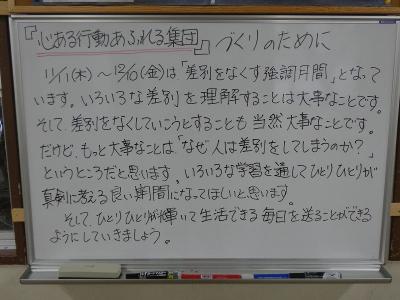 『心ある行動あふれる集団』づくりのために
11/11(木)～12/10(金)は「差別をなくす強調月間」となって
います。いろいろな差別を理解することは大事なことです。
そして、差別をなくしていこうとすることも当然大事なことです。
だけど、もっと大事なことは「なぜ人は差別をしてしまうのか?」
というところだと思います。いろいろな学習を通してひとりひとりが
真剣に考える良い期間になってほしいと思います。
そして、ひとりひとりが輝いて生活できる毎日を送ることができる
ようにしていきましょう。